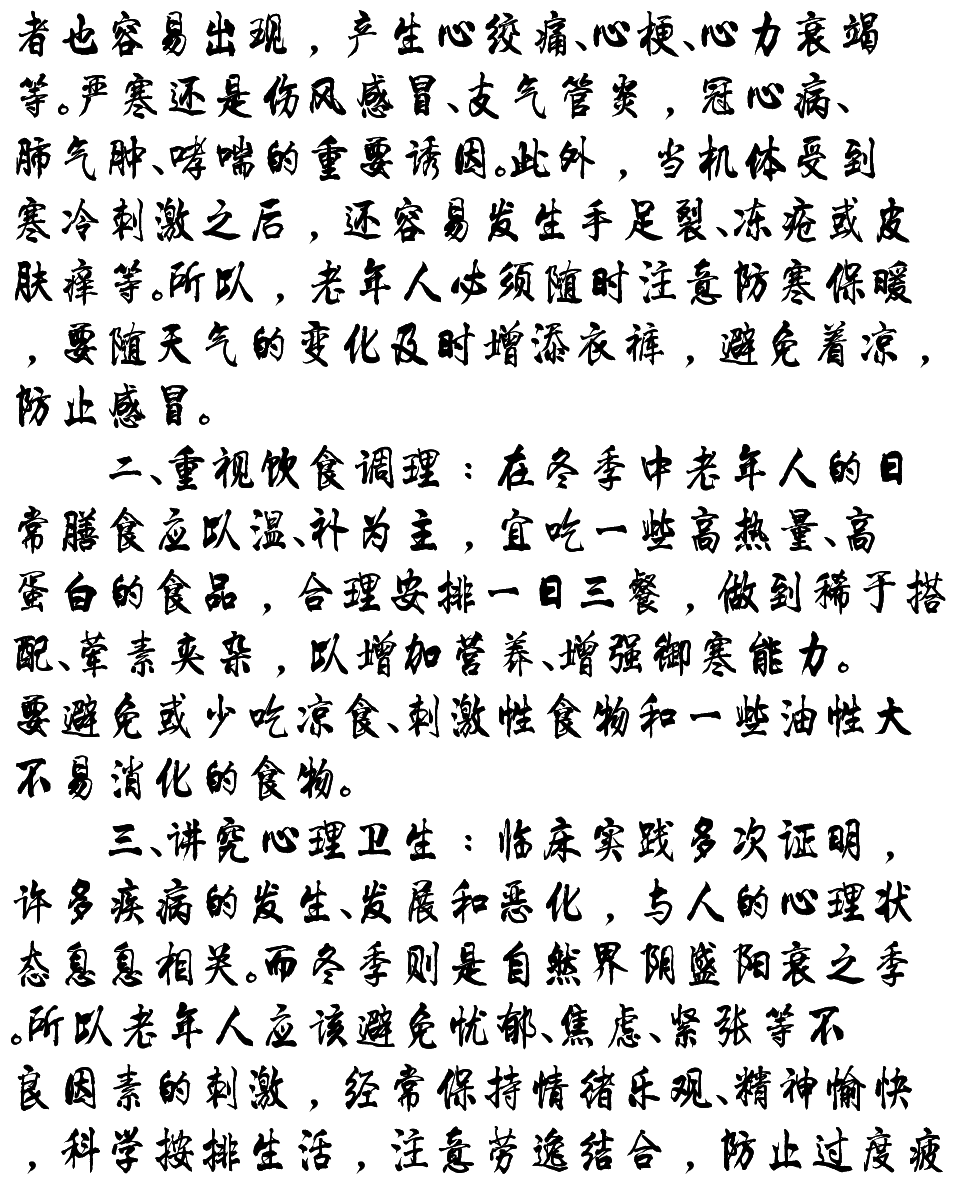 者也容易出现，产生心绞痛、心梗、心力衰竭
等。严寒还是伤风感冒、支气管炎，冠心病、
肺气肿、哮喘的重要诱因。此外，当机体受到
寒冷刺激之后，还容易发生手足裂、冻疮或皮
肤痒等。所以，老年人必须随时注意防寒保暖
，要随天气的变化及时增添衣裤，避免着凉，
防止感冒。
二、重视饮食调理：在冬季中老年人的日
常膳食应以温、补为主，宜吃一些高热量、高
蛋白的食品，合理安排一日三餐，做到稀于搭
配、荤素夹杂，以增加营养、增强御寒能力。
要避免或少吃凉食、刺激性食物和一些油性大
不易消化的食物。
三、讲究心理卫生：临床实践多次证明，
许多疾病的发生、发展和恶化，与人的心理状
态息息相关。而冬季则是自然界阴盛阳衰之季
。所以老年人应该避免忧郁、焦虑、紧张等不
良因素的刺激，经常保持情绪乐观、精神愉快
，科学按排生活，注意劳逸结合，防止过度疲